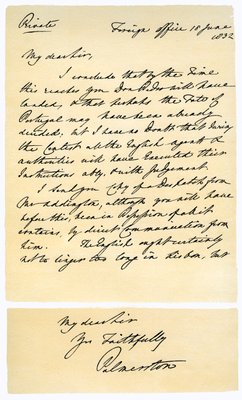 Private
Foreign Office 18 June
1832
My dear Sir,
I conclude that by the Time
this reaches you Don Pedro will have
landed, & that perhaps the Fate of
Portugal may have been already
decided, but I have no Doubt that during
the Contest all the English agents &
authorities will have executed their
Instructions ably, & with Judgement.
I send you Copy of a Despatch from
Mr Addington, although you will have
before this, been in Possession of all it
contains, by direct Communication from
him. The English ought certainly
not to linger too long in Lisbon, but
My dear Sir
Yrs Faithfully
Palmerston